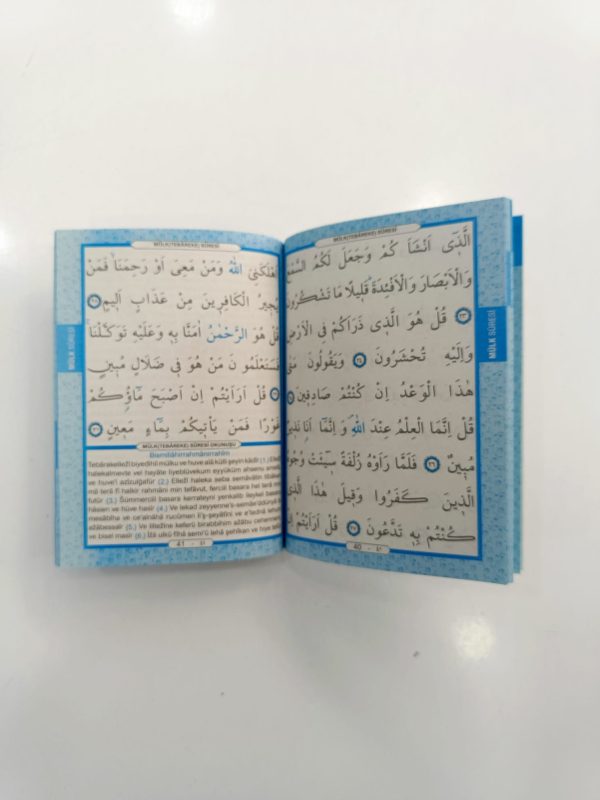 MÜLK(TEBÂREKE) SÛRESİ
اَلَّذ۪ٓي اَنْشَاَ كُمْ وَجَعَلَ لَكُمُ السَّمْعَ
وَالْاَبْصَارَ وَالْاَفْـِٔدَةَ قَل۪يلًا مَا تَشْكُرُونَ
٢٣ قُلْ هُوَ الَّذ۪ي ذَرَاَكُمْ فِي الْاَرْضِ
وَاِلَيْهِ تُحْشَرُونَ ٢٤ وَيَقُولُونَ مَتٰى
هٰذَا الْوَعْدُ اِنْ كُنْتُمْ صَادِق۪ينَ ٢٥
قُلْ اِنَّمَا الْعِلْمُ عِنْدَ اللّٰهِ وَ اِنَّمَٓا اَنَا۬ نَذ۪يرٌ
مُب۪ينٌ ٢٦ فَلَمَّا رَاَوْهُ زُلْفَةً س۪ٓيـَٔتْ وُجُوهُ
الَّذ۪ينَ كَفَرُوا وَق۪يلَ هٰذَا الَّذ۪ي
كُنْتُمْ بِه۪ تَدَّعُونَ ٢٧ قُلْ اَرَاَيْتُمْ اِنْ
40 - ٤٠
MÜLK SÛRESİ
MÜLK(TEBÂREKE) SÛRESİ
اَهْلَكَنِيَ اللّٰهُ وَمَنْ مَعِيَ اَوْ رَحِمَنَا فَمَنْ
يُج۪يرُ الْكَافِر۪ينَ مِنْ عَذَابٍ اَل۪يمٍ ٢٨
قُلْ هُوَ الرَّحْمٰنُ اٰمَنَّا بِه۪ وَعَلَيْهِ تَوَكَّلْنَا
فَسَتَعْلَمُونَ مَنْ هُوَ ف۪ي ضَلَالٍ مُب۪ينٍ
٢٩ قُلْ اَرَاَيْتُمْ اِنْ اَصْبَحَ مَٓاؤُ۬كُمْ
غَوْرًا فَمَنْ يَأْت۪يكُمْ بِمَٓاءٍ مَع۪ينٍ ٣٠
MÜLK(TEBÂREKE) SÛRESİ OKUNUŞU
Bismillâhirrahmânirrahîm
Tebârakellezî biyedihil mülku ve huve alâ külli şeyin kâdîr (1.) Ellezî
halekalmevte vel hayâte liyeblüvekum eyyüküm ahsenu amelâ
ve huve'l azîzulğafûr (2.) Ellezî haleka seba semâvâtin tıbâkâ
mâ terâ fî halkır rahmâni min tefâvut, ferciıl basara hel terâ min
futûr (3.) Summercııl basara kerrateyni yenkalib ileykel basaru
hâsien ve hüve hasîr (4.) Ve lekad zeyyenne's-semâe'ddünyâ bi
mesâbîha ve ce'alnâhâ rucûmen li'ş-şeyâtîni ve a'tednâ lehüm
azâbessaîr (5.) Ve lillezîne keferû birabbihim azâbu cehennem
ve bisel masîr (6.) İzâ ulkû fîhâ semi'û lehâ şehîkan ve hiye
41 - ٤١
MÜLK SÛRESİ